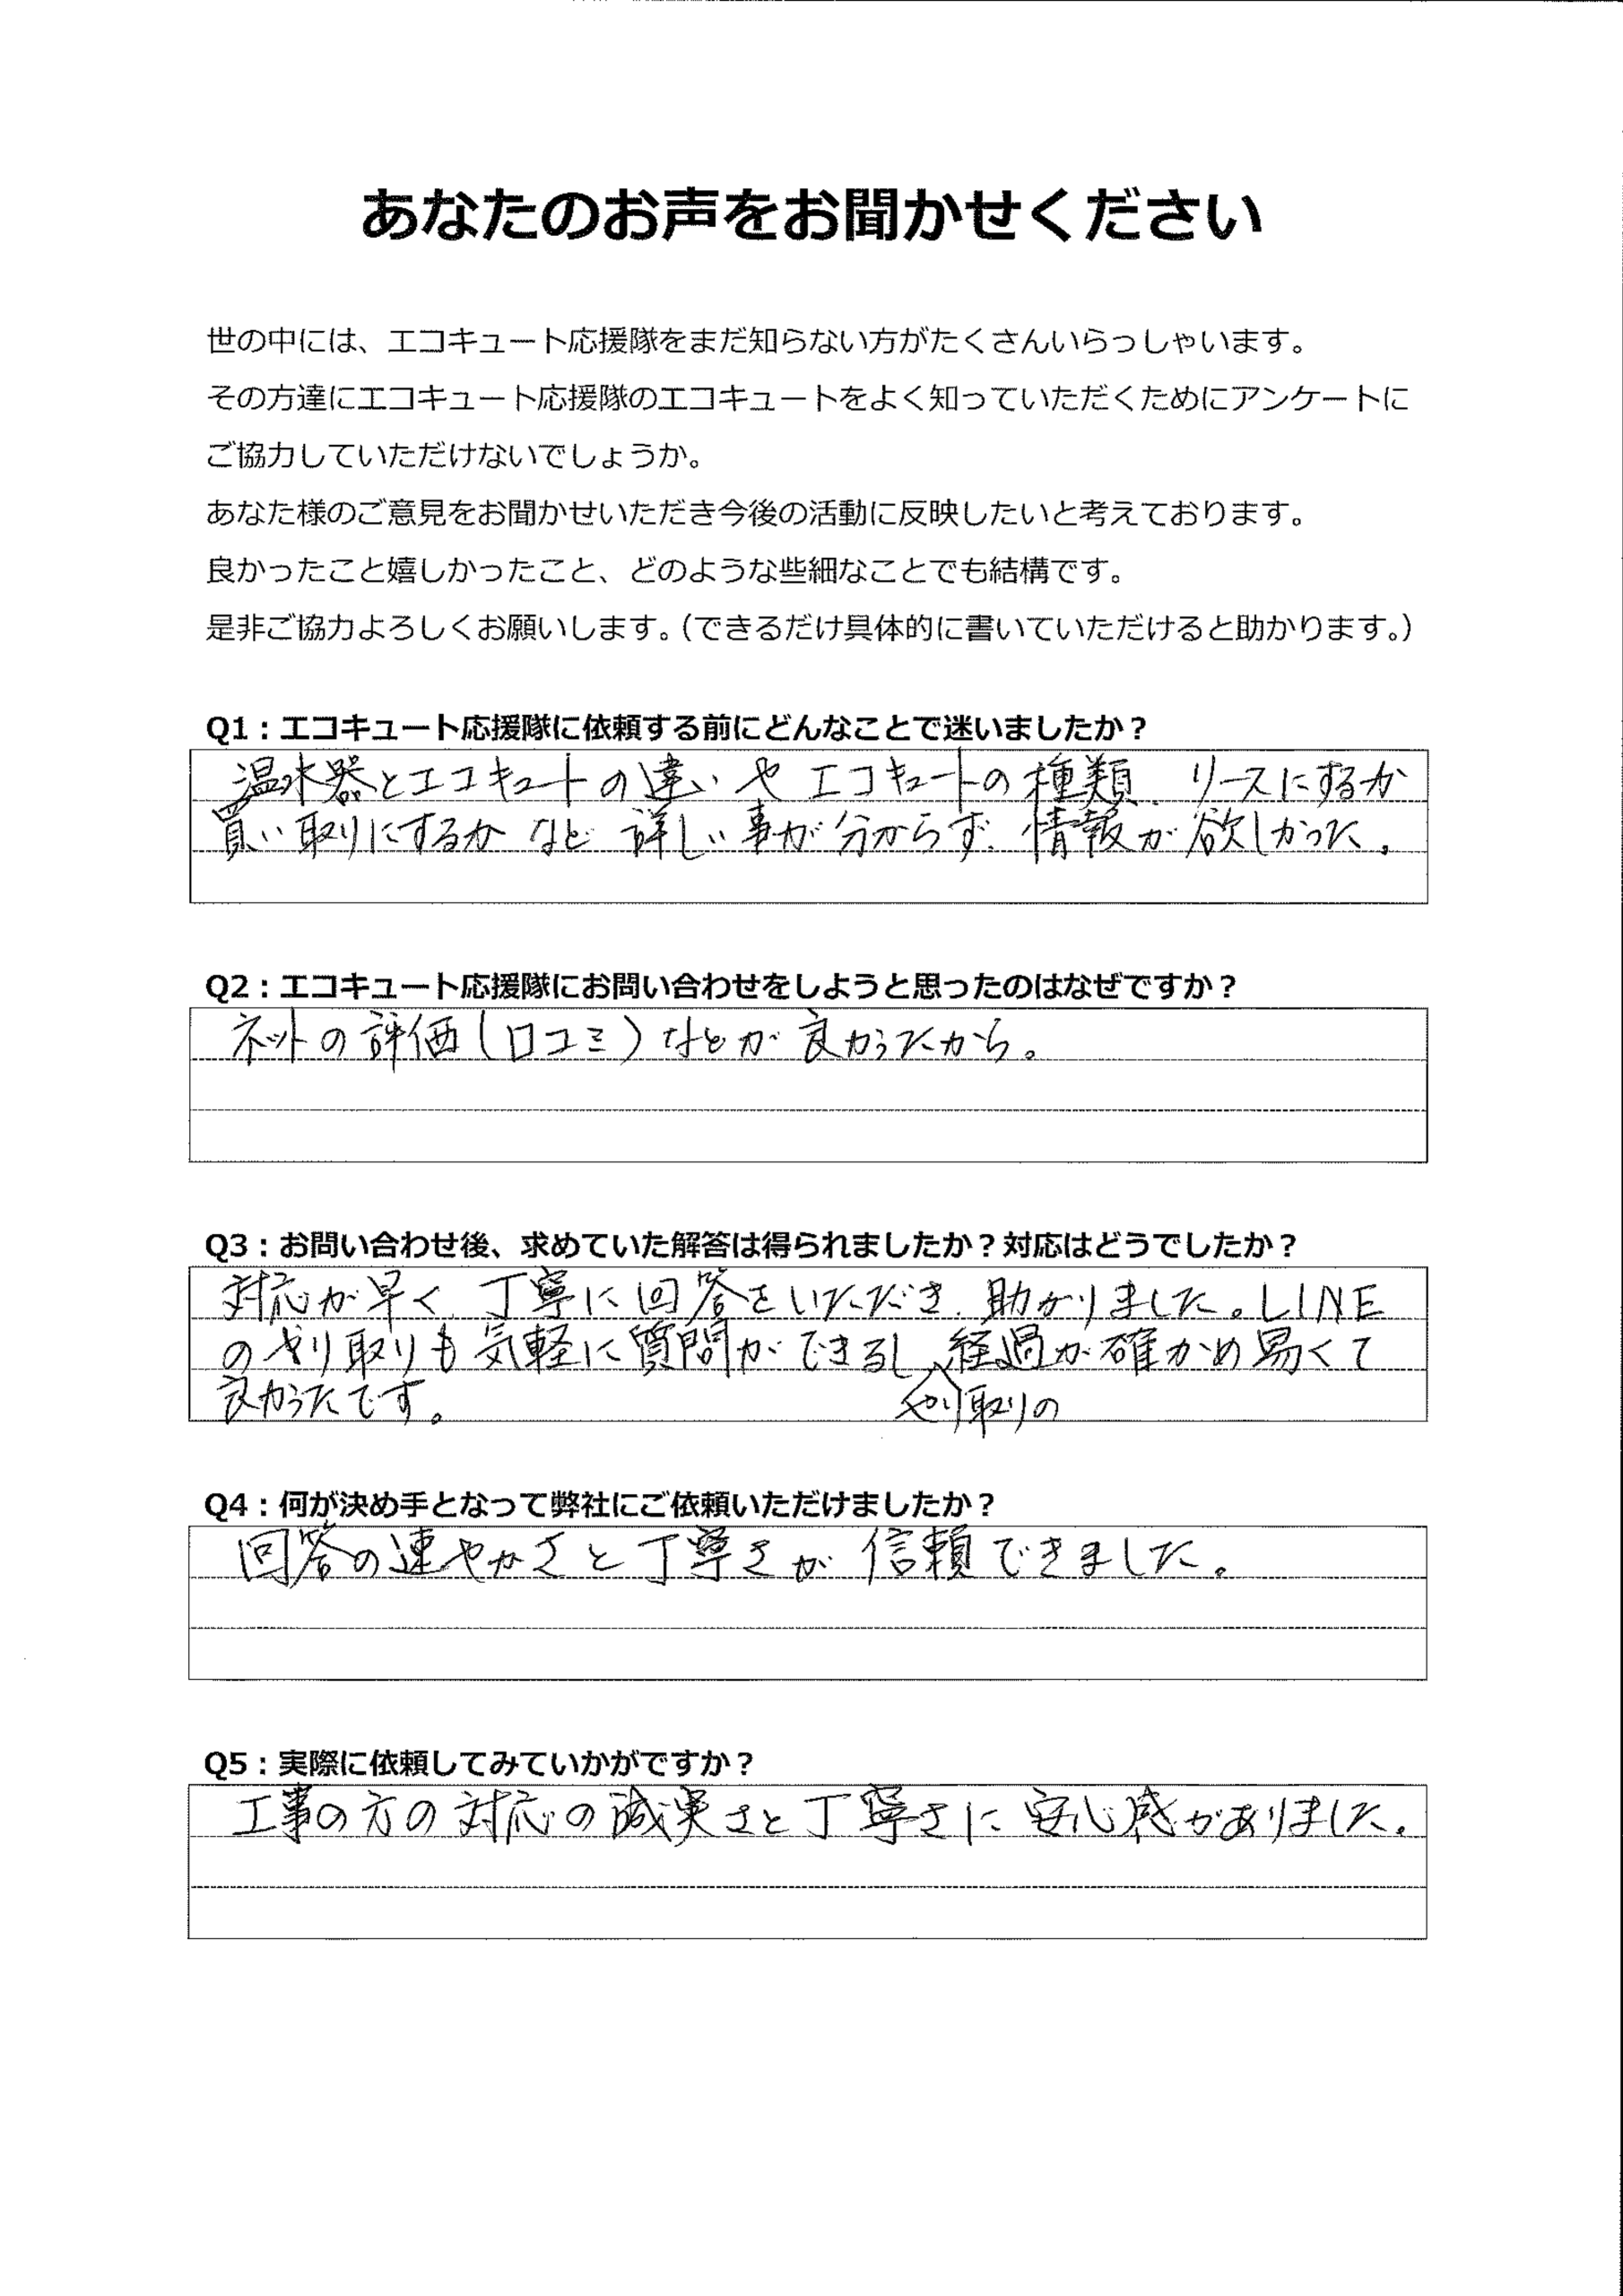 あなたのお声をお聞かせください
世の中には、エコキュート応援隊をまだ知らない方がたくさんいらっしゃいます。
その方達にエコキュート応援隊のエコキュートをよく知っていただくためにアンケートに
ご協力していただけないでしょうか。
あなた様のご意見をお聞かせいただき今後の活動に反映したいと考えております。
良かったこと嬉しかったこと、どのような些細なことでも結構です。
是非ご協力よろしくお願いします。（できるだけ具体的に書いていただけると助かります。）
Q1：エコキュート応援隊に依頼する前にどんなことで迷いましたか？
温水器とエコキュートの違いや エコキュートの種類、リースにするか
買い取りにするか など 詳しい事が分からず、情報が欲しかった。
Q2：エコキュート応援隊にお問い合わせをしようと思ったのはなぜですか？
ネットの評価（口コミ）などが良かったから。
Q3：お問い合わせ後、求めていた解答は得られましたか？対応はどうでしたか？
対応が早く、丁寧に回答をいただき、助かりました。LINE
のやり取りも気軽に質問ができるし、経過が確かめ易くて
良かったです。 やり取りの
Q4：何が決め手となって弊社にご依頼いただけましたか？
回答の速やかさと丁寧さが 信頼できました。
Q5：実際に依頼してみていかがですか？
工事の方の対応の誠実さと丁寧さに安心感がありました。